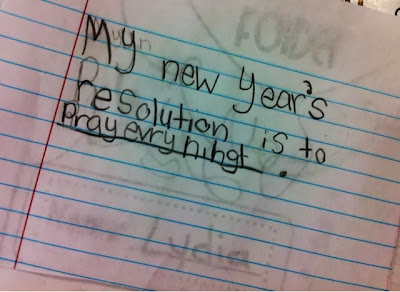 My new Year's
Resolution is to
Pray evry nihgt.
Lydia